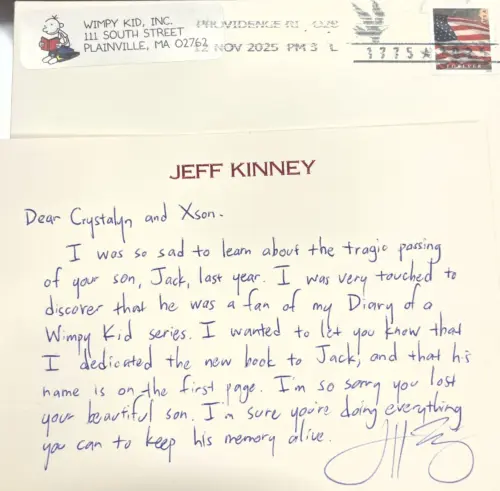 WIMPY KID, INC.
111 SOUTH STREET
PLAINVILLE, MA 02762
PROVIDENCE RI 028
12 NOV 2025 PM 3 L
1775
FOREVER
JEFF KINNEY
Dear Crystalyn and Xson.
I was so sad to learn about the tragic passing
of your son, Jack, last year. I was very touched to
discover that he was a fan of my Diary of a
Wimpy Kid series. I wanted to let you know that
I dedicated the new book to Jack, and that his
name is on the first page. I'm so sorry you lost
your beautiful son. I'm sure you're doing everything
you can to keep his memory alive.